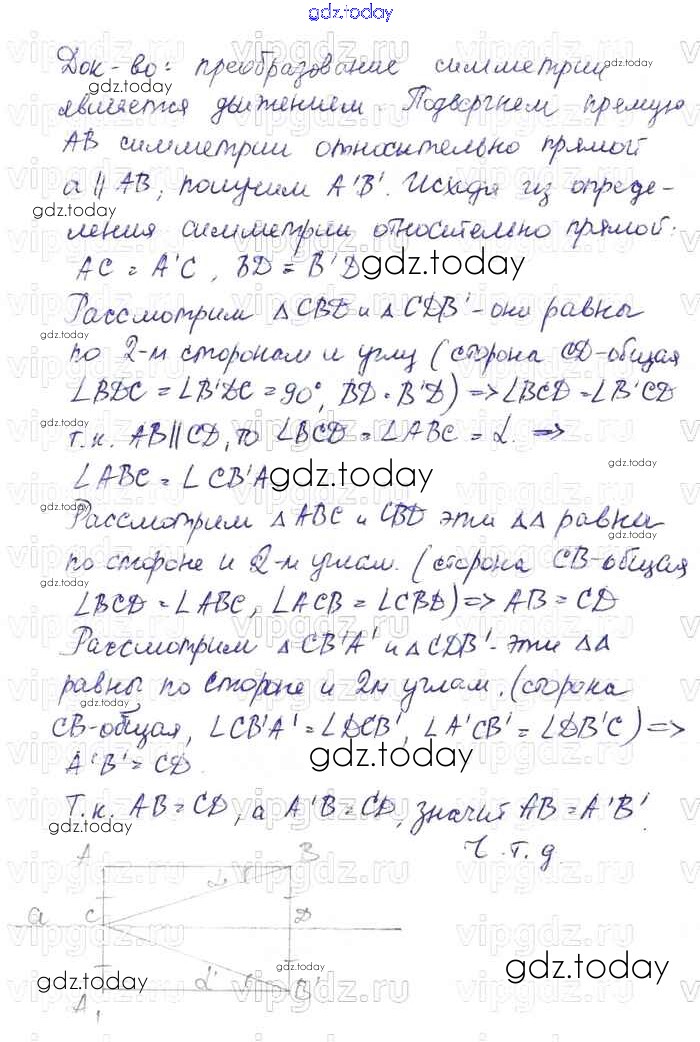 gdz.today
Док-во: преобразование симметрии
является движением. Подвергнем прямую
AB симметрии относительно прямой
a ∥ AB, получим A'B'. Исходя из опреде-
ления симметрии относительно прямой:
AC = A'C, BD = B'D
gdz.today
Рассмотрим △CBD и △CDB' - они равны
по 2-м сторонам и углу (сторона CD-общая
∠BDC = ∠B'DC = 90°, BD = B'D) => ∠BCD = ∠B'CD
т.к. AB∥CD, то ∠BCD = ∠ABC = α. =>
∠ABC = ∠CB'A
gdz.today
Рассмотрим △ABC и CBD эти △△ равны
по стороне и 2-м углам. (сторона CB-общая
∠BCD = ∠ABC, ∠ACB = ∠CBD) => AB = CD
Рассмотрим △CB'A' и △CDB' - эти △△
равны по стороне и 2м углам. (сторона
CB-общая, ∠CB'A' = ∠DCB', ∠A'CB' = ∠DB'C) =>
A'B' = CD.
gdz.today
Т.к. AB = CD, а A'B = CD, значит AB = A'B'.
gdz.today
Ч.т.д.
A B
α γ
a C D
α'
gdz.today
A₁ B'
gdz.today
gdz.today